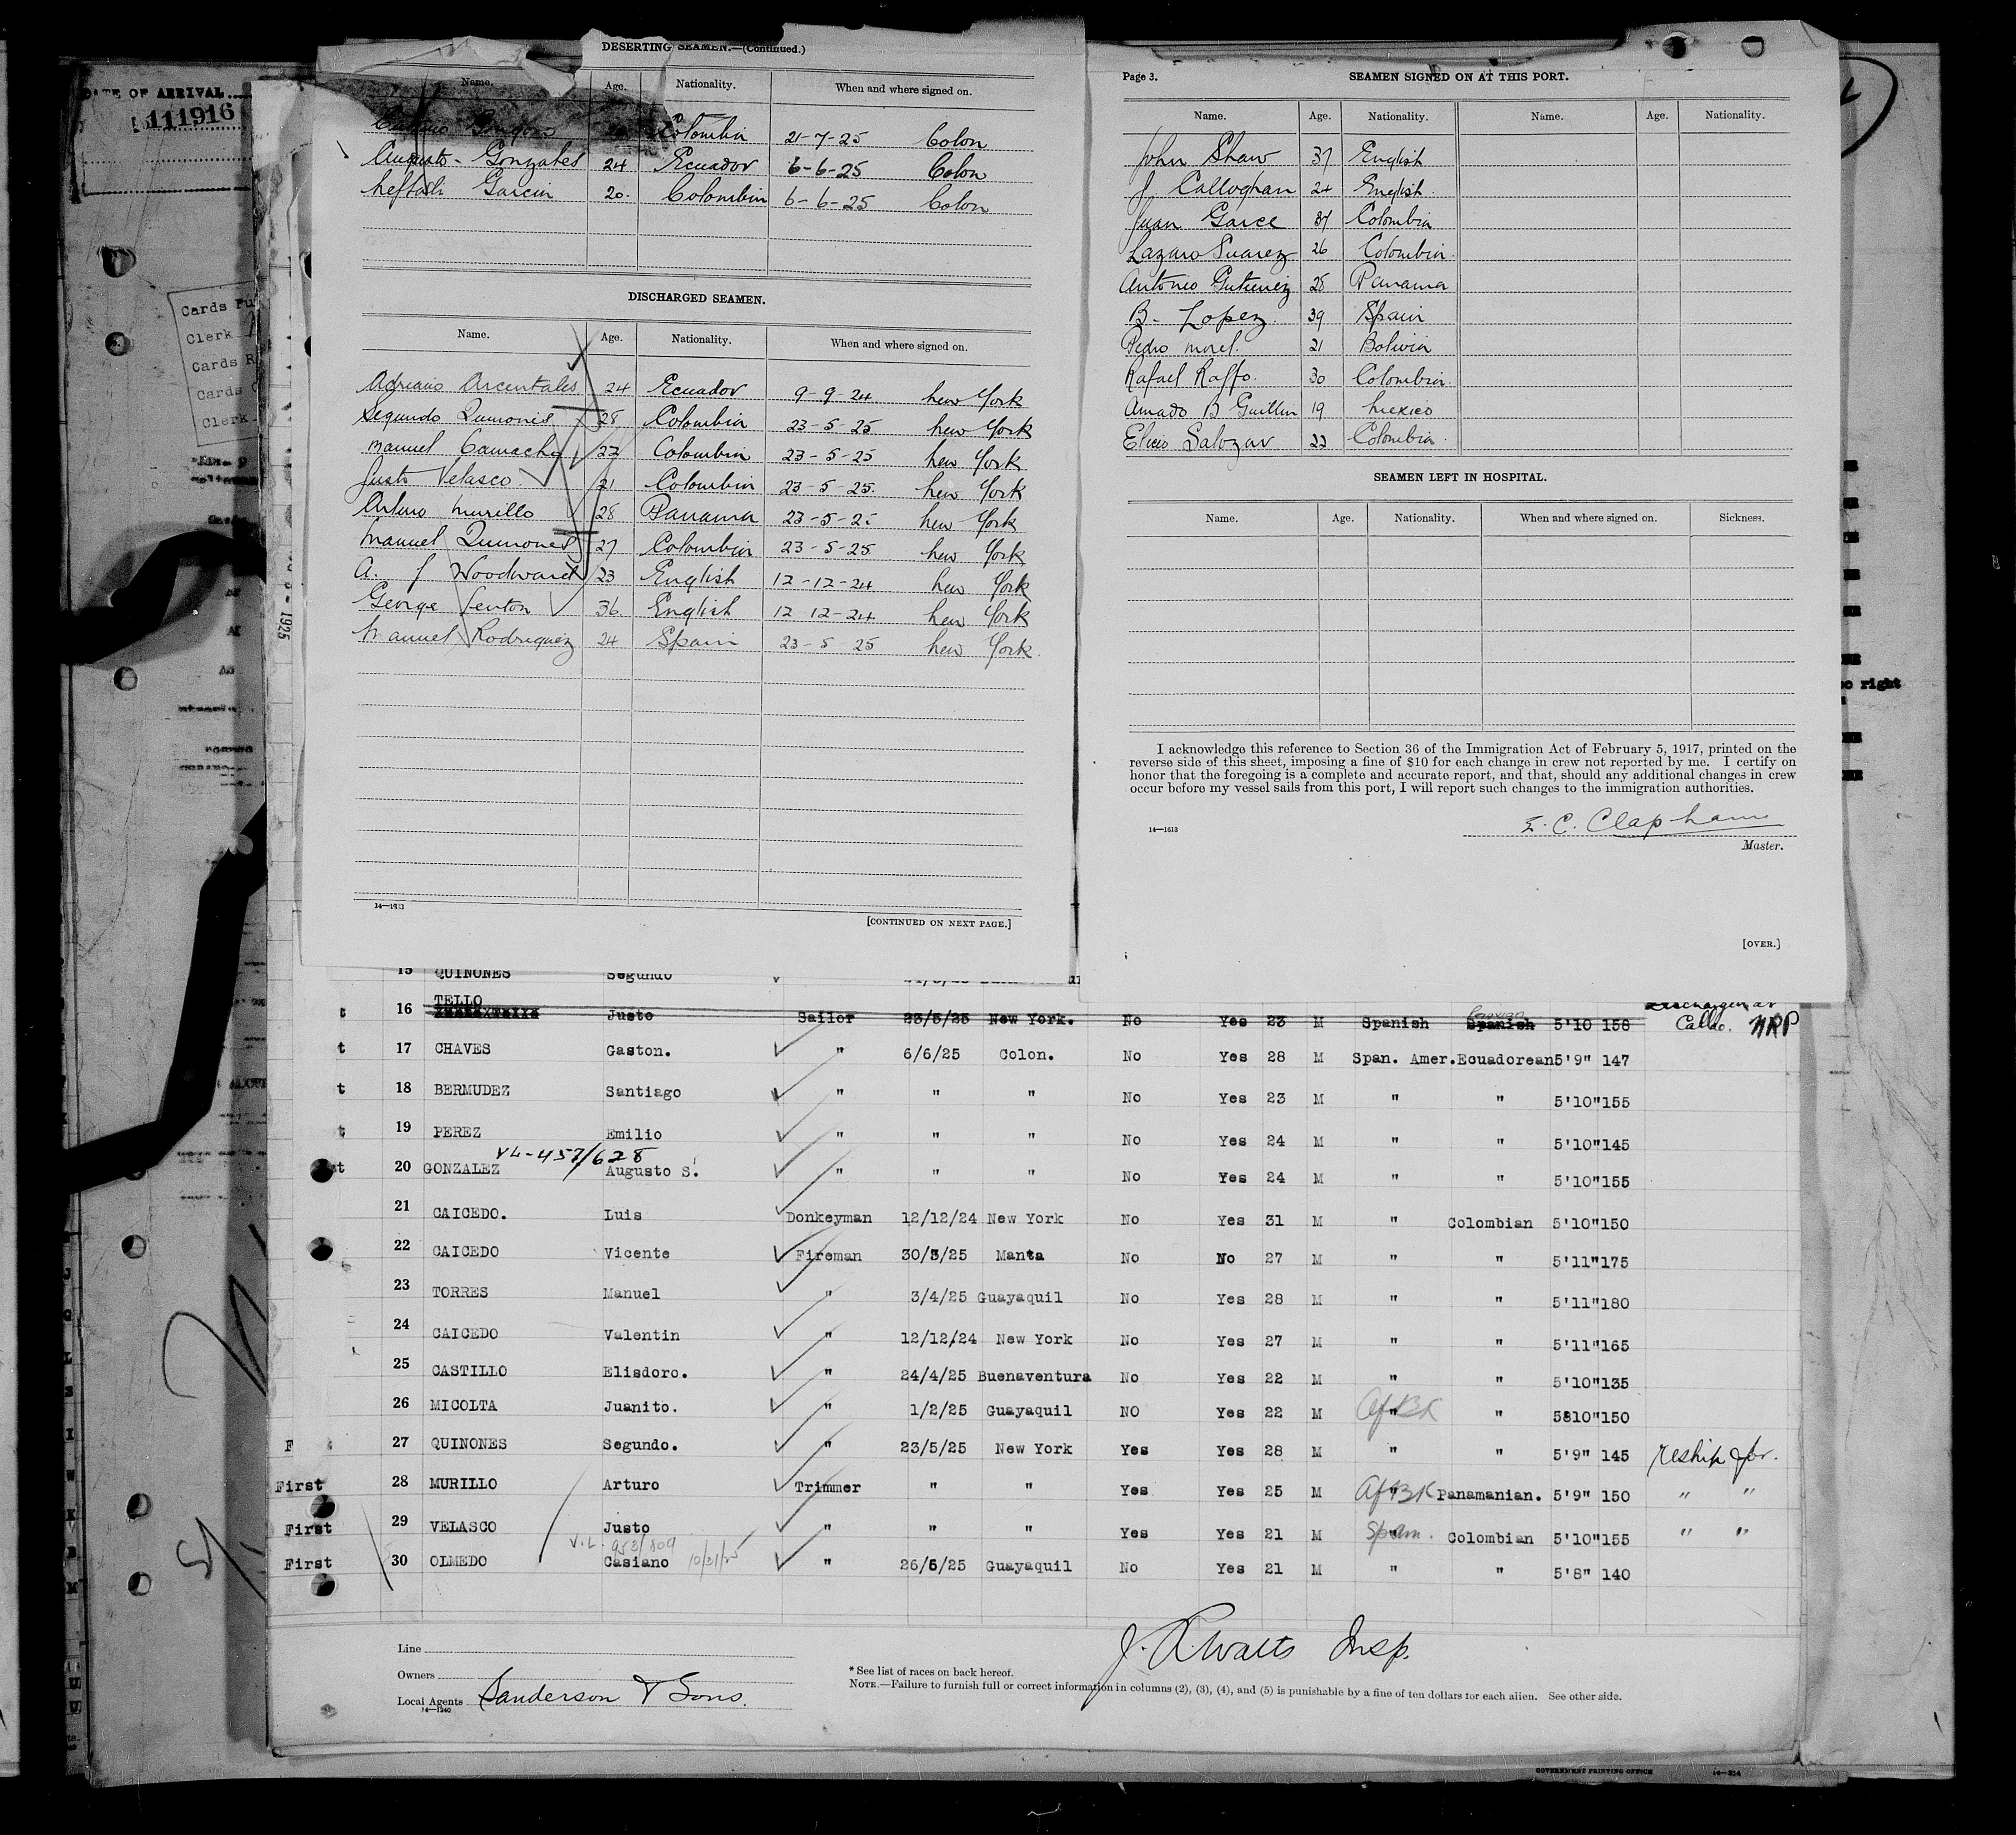 DATE OF ARRIVAL
111916
Cards Pu
Clerk
Cards R
Cards
Clerk
1925
DESERTING SEAMEN.—(Continued.)
Name. Age. Nationality. When and where signed on.
Colombia 21-7-25 Colon
Augusto Gonzales 24 Ecuador 6-6-25 Colon
Garcia 20 Colombia 6-6-25 Colon
DISCHARGED SEAMEN.
Name. Age. Nationality. When and where signed on.
Adriano Arcentales 24 Ecuador 9-9-24 New York
Segundo Quinones 28 Colombia 23-5-25 New York
Manuel Camacho 22 Colombia 23-5-25 New York
Justo Velasco 21 Colombia 23-5-25 New York
Arturo Murillo 28 Panama 23-5-25 New York
Manuel Quinones 27 Colombia 23-5-25 New York
A. J Woodward 23 English 12-12-24 New York
George Fenton 36 English 12-12-24 New York
Manuel Rodriguez 24 Spain 23-5-25 New York
14—1613
[CONTINUED ON NEXT PAGE.]
Page 3. SEAMEN SIGNED ON AT THIS PORT.
Name. Age. Nationality. Name. Age. Nationality.
John Shaw 37 English
J. Calloghan 24 English
Juan Garce 37 Colombia
Lazaro Suarez 26 Colombia
Antonio Gutierrez 28 Panama
B. Lopez. 39 Spain
Pedro Morel. 21 Bolivia
Rafael Raffo. 30 Colombia
Amado B Guillen 19 Mexico
Elicio Salazar 22 Colombia
SEAMEN LEFT IN HOSPITAL.
Name. Age. Nationality. When and where signed on. Sickness.
I acknowledge this reference to Section 36 of the Immigration Act of February 5, 1917, printed on the
reverse side of this sheet, imposing a fine of $10 for each change in crew not reported by me. I certify on
honor that the foregoing is a complete and accurate report, and that, should any additional changes in crew
occur before my vessel sails from this port, I will report such changes to the immigration authorities.
E. C. Clapham
14—1613
Master.
[OVER.]
right
15 QUINONES Segundo
Discharged at
t 16 TELLO Justo Sailor 23/5/25 New York. No Yes 23 M Spanish Spanish 5'10 158 Callao. NRP
t 17 CHAVES Gaston. " 6/6/25 Colon. No Yes 28 M Span. Amer. Ecuadorean 5'9" 147
t 18 BERMUDEZ Santiago " " " No Yes 23 M " " 5'10" 155
t 19 PEREZ Emilio " " " No Yes 24 M " " 5'10" 145
VL-457/628
t 20 GONZALEZ Augusto S. " " " No Yes 24 M " " 5'10" 155
21 CAICEDO. Luis Donkeyman 12/12/24 New York No Yes 31 M " Colombian 5'10" 150
22 CAICEDO Vicente Fireman 30/3/25 Manta No No 27 M " " 5'11" 175
23 TORRES Manuel " 3/4/25 Guayaquil No Yes 28 M " " 5'11" 180
24 CAICEDO Valentin " 12/12/24 New York No Yes 27 M " " 5'11" 165
25 CASTILLO Elisdoro. " 24/4/25 Buenaventura No Yes 22 M " " 5'10" 135
26 MICOLTA Juanito. " 1/2/25 Guayaquil NO Yes 22 M Af BK " 5810" 150
F 27 QUINONES Segundo. " 23/5/25 New York Yes Yes 28 M " " 5'9" 145 reship for.
First 28 MURILLO Arturo Trimmer " " Yes Yes 25 M Af BK Panamanian. 5'9" 150 " "
First 29 VELASCO Justo " " " Yes Yes 21 M Sp.am. Colombian 5'10" 155 " "
V.L. 953/809
First 30 OLMEDO Casiano 10/31/25 " 26/5/25 Guayaquil No Yes 21 M " " 5'8" 140
Line
Owners
Local Agents Sanderson & Sons.
14—1240
J. R. Watts Insp.
* See list of races on back hereof.
NOTE.—Failure to furnish full or correct information in columns (2), (3), (4), and (5) is punishable by a fine of ten dollars for each alien. See other side.
GOVERNMENT PRINTING OFFICE 14—314